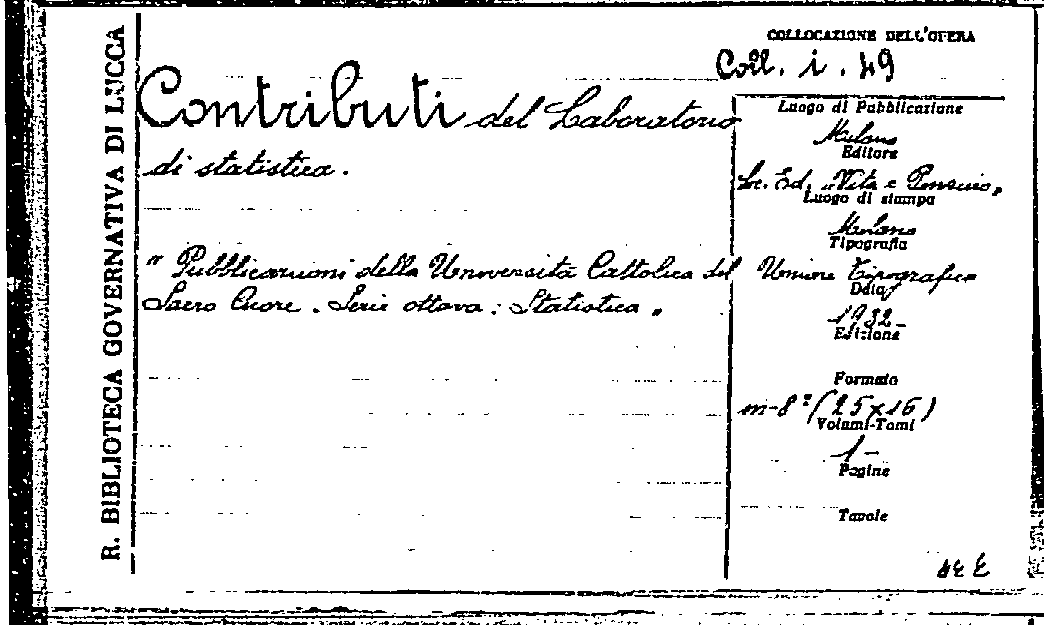 R. BIBLIOTECA GOVERNATIVA DI LUCCA
COLLOCAZIONE DELL'OPERA
Coll. i. 49
Contributi del Laboratorio
di statistica.
"Pubblicazioni della Università Cattolica del
Sacro Cuore. Serie ottava: Statistica"
Luogo di Pubblicazione
Milano
Editore
Soc. Ed. "Vita e Pensiero"
Luogo di stampa
Milano
Tipografia
Unione Tipografica
Data
1932
Edizione
Formato
in-8° (25x16)
Volumi-Tomi
1-
Pagine
Tavole